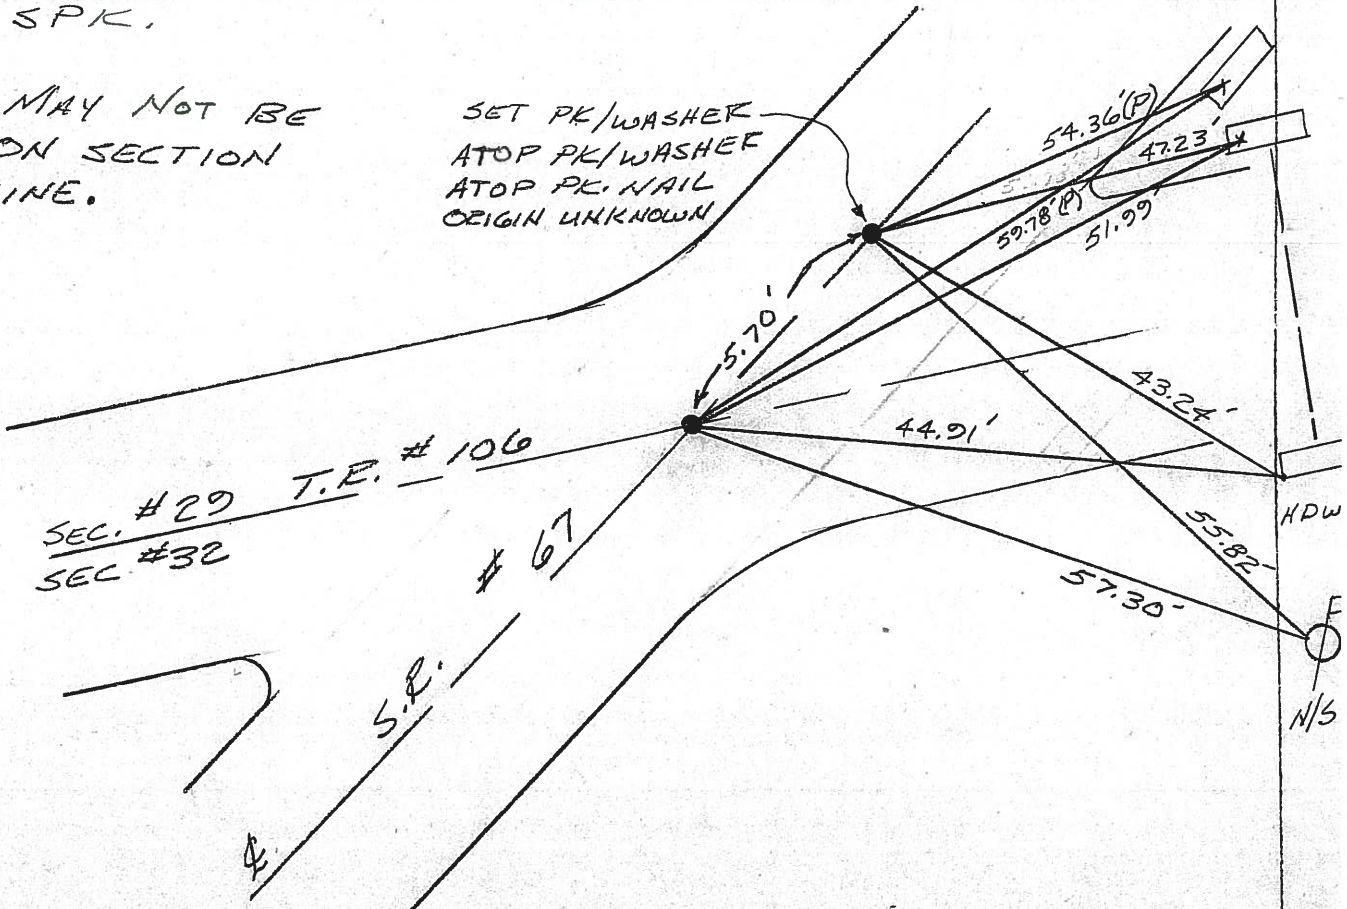 SPK.
MAY NOT BE
ON SECTION
INE.
SET PK/WASHER
ATOP PK/WASHER
ATOP PK. NAIL
ORIGIN UNKNOWN
54.36'(P)
47.23'
59.78'(P)
51.99'
5.70'
43.24'
44.91'
55.82'
57.30'
HDW
N/S
T.R. # 106
SEC. #29
SEC #32
S.R. # 67
℄